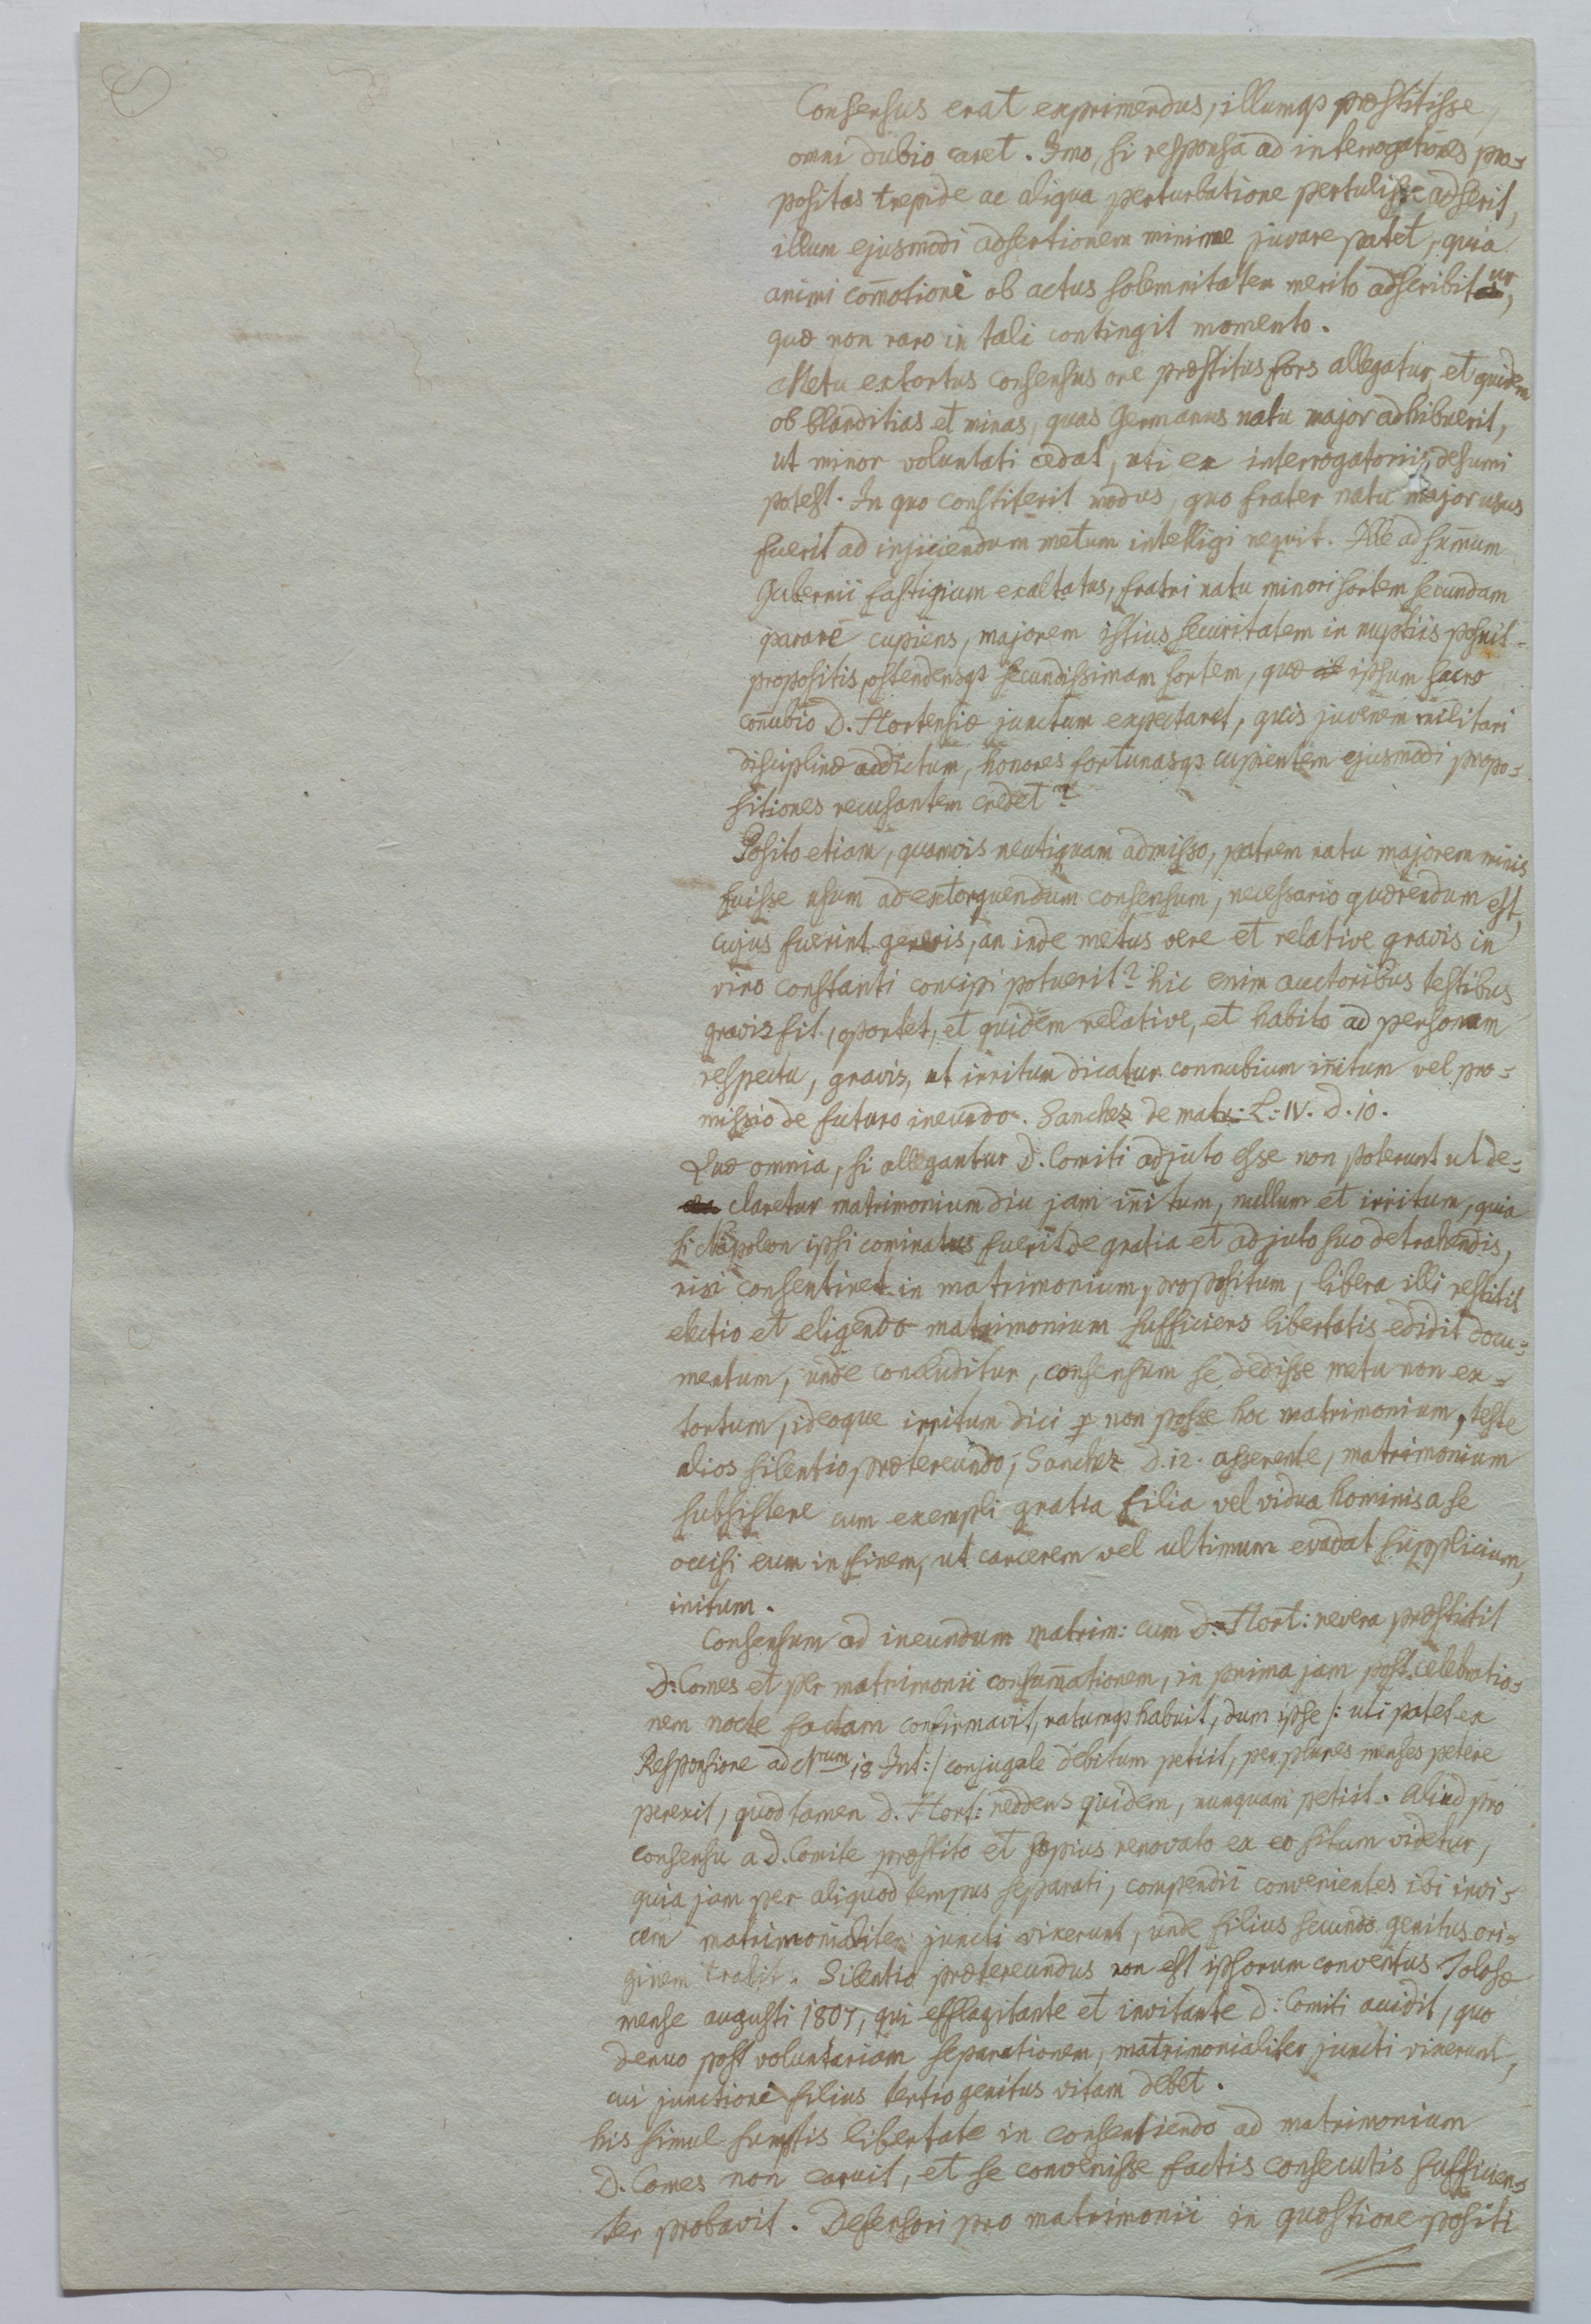 Consensus erat exprimendus, illumqs præstitisse,
omni dubio caret. Imo, si responsa ad interrogatōnes pro=
positas trepide ac aliqua perturbatione pertulisse adserit,
illum ejusmodi adsertionem minime juvare patet, quia
animi com̄otioni ob actus solemnitatem merito adscribitur,
quæ non raro in tali contingit momento.
Metu extortus consensus ore præstitus fors allegatur, et quidem
ob blanditias et minas, quas Germanus natu major adhibuerit,
ut minor voluntati cedat, uti ex interrogatoriis desumi
potest. In quo constiterit modus, quo frater natu major usus
fuerit ad injiciendum metum intelligi nequit. Ille ad sum̄um
Gubernii fastigium exaltatus, fratri natu minori sortem secundam
parare cupiens, majorem istius securitatem in nuptiis posuit
propositis, ostendensqs secundissimam sortem, quæ ipsum sacro
con̄ubio D. Hortensiæ junctum expectaret, quis juvenem militari
disciplinæ addictum, honores fortunasqs cupientem ejusmodi propo=
sitiones recusantem credet?
Posito etiam, quamvis neutiquam admisso, patrem natu majorem minis
fuisse usum ad extorquendum consensum, necessario quærendum est,
cujus fuerint generis, an inde metus vere et relative gravis in
viro constanti concipi potuerit? hic enim auctoribus testibus
gravis sit, oportet, et quidem relative, et habito ad personam
respectu, gravis, ut irritum dicatur connubium initum vel pro=
missio de futuro ineundo. Sanchez de matr: L: IV. D. 10.
Quæ omnia, si allegantur D. Comiti adjuto esse non poterunt ut de=
claretur matrimonium diu jam initum, nullum et irritum, quia
si Napoleon ipsi cominatus fuerit de gratia et adjuto suo detrahendis,
nisi consentiret in matrimonium propositum, libera illi restitit
electio et eligendo matrimonium sufficiens libertatis edidit docu=
mentum, unde concluditur, consensum se dedisse metu non ex=
tortum, ideoque irritum dici non posse hoc matrimonium, teste
alios silentio prætereundo, Sanchez D. 12. asserente, matrimonium
subsistere cum exempli gratia filia vel vidua hominis a se
occisi eum in finem, ut carcerem vel ultimum evadat supplicium,
initum.
Consensum ad ineundum matrim: cum D: Hort: revera præstitit
D: Comes et per matrimonii consum̄ationem, in prima jam post celebratio=
nem nocte factam confirmavit, ratumqs habuit, dum ipse /: uti patet ex
Responsione ad Nrum 18 Int: / conjugale debitum petiit, per plures menses petere
perexit, quod tamen D. Hort: reddens quidem, nunquam petiit. Aliud pro
consensu a D. Comite præstito et sæpius renovato ex eo situm videtur,
quia jam per aliquod tempus separati, compendii convenientes ibi invi=
cem matrimonialiter juncti vixerunt, unde filius secundo genitus ori=
ginem trahit. Silentio prætereundus non est ipsorum conventus Tolosæ
mense augusti 1807, qui efflagitante et invitante D: Comiti accidit, quo
denuo post voluntariam separationem, matrimonialiter juncti vixerunt,
cui junctioni filius tertio genitus vitam debet.
his simul sumptis libertate in consentiendo ad matrimonium
D. Comes non caruit, et se convenisse factis consecutis sufficien=
ter probavit. Defensori pro matrimonii in quæstione positi